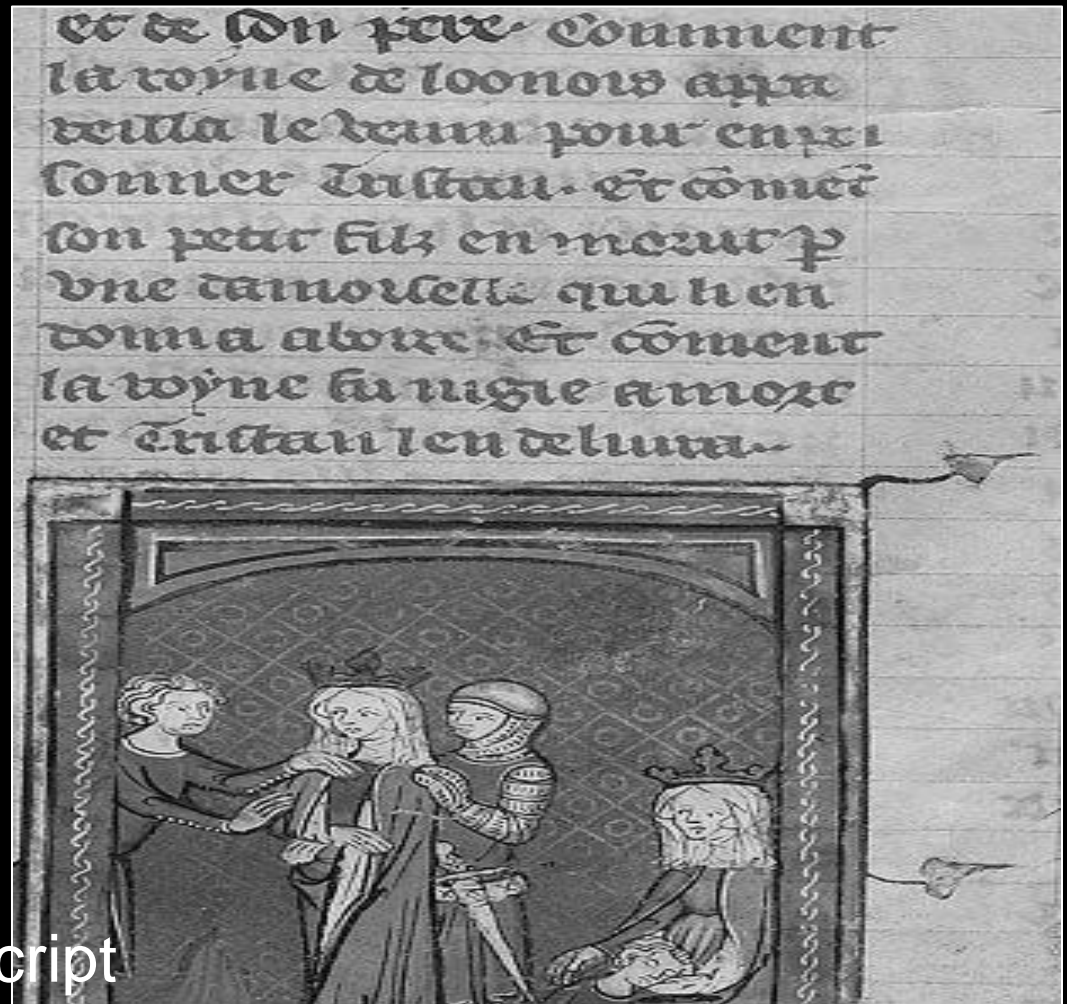 et de son pere. Comment
la royne de loonois appa
reilla le venin pour enpoi
sonner Tristan. Et cōmēt
son petit filz en morut ꝑ
vne damoiselle qui li en
donna aboire. Et cōment
la royne fu iugie amort
et Tristan len deliura.
cript